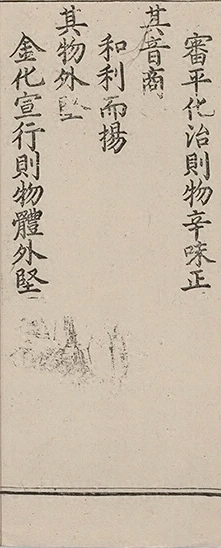 審平化治則物辛味正
其音商
和利而揚
其物外堅
金化宣行則物體外堅